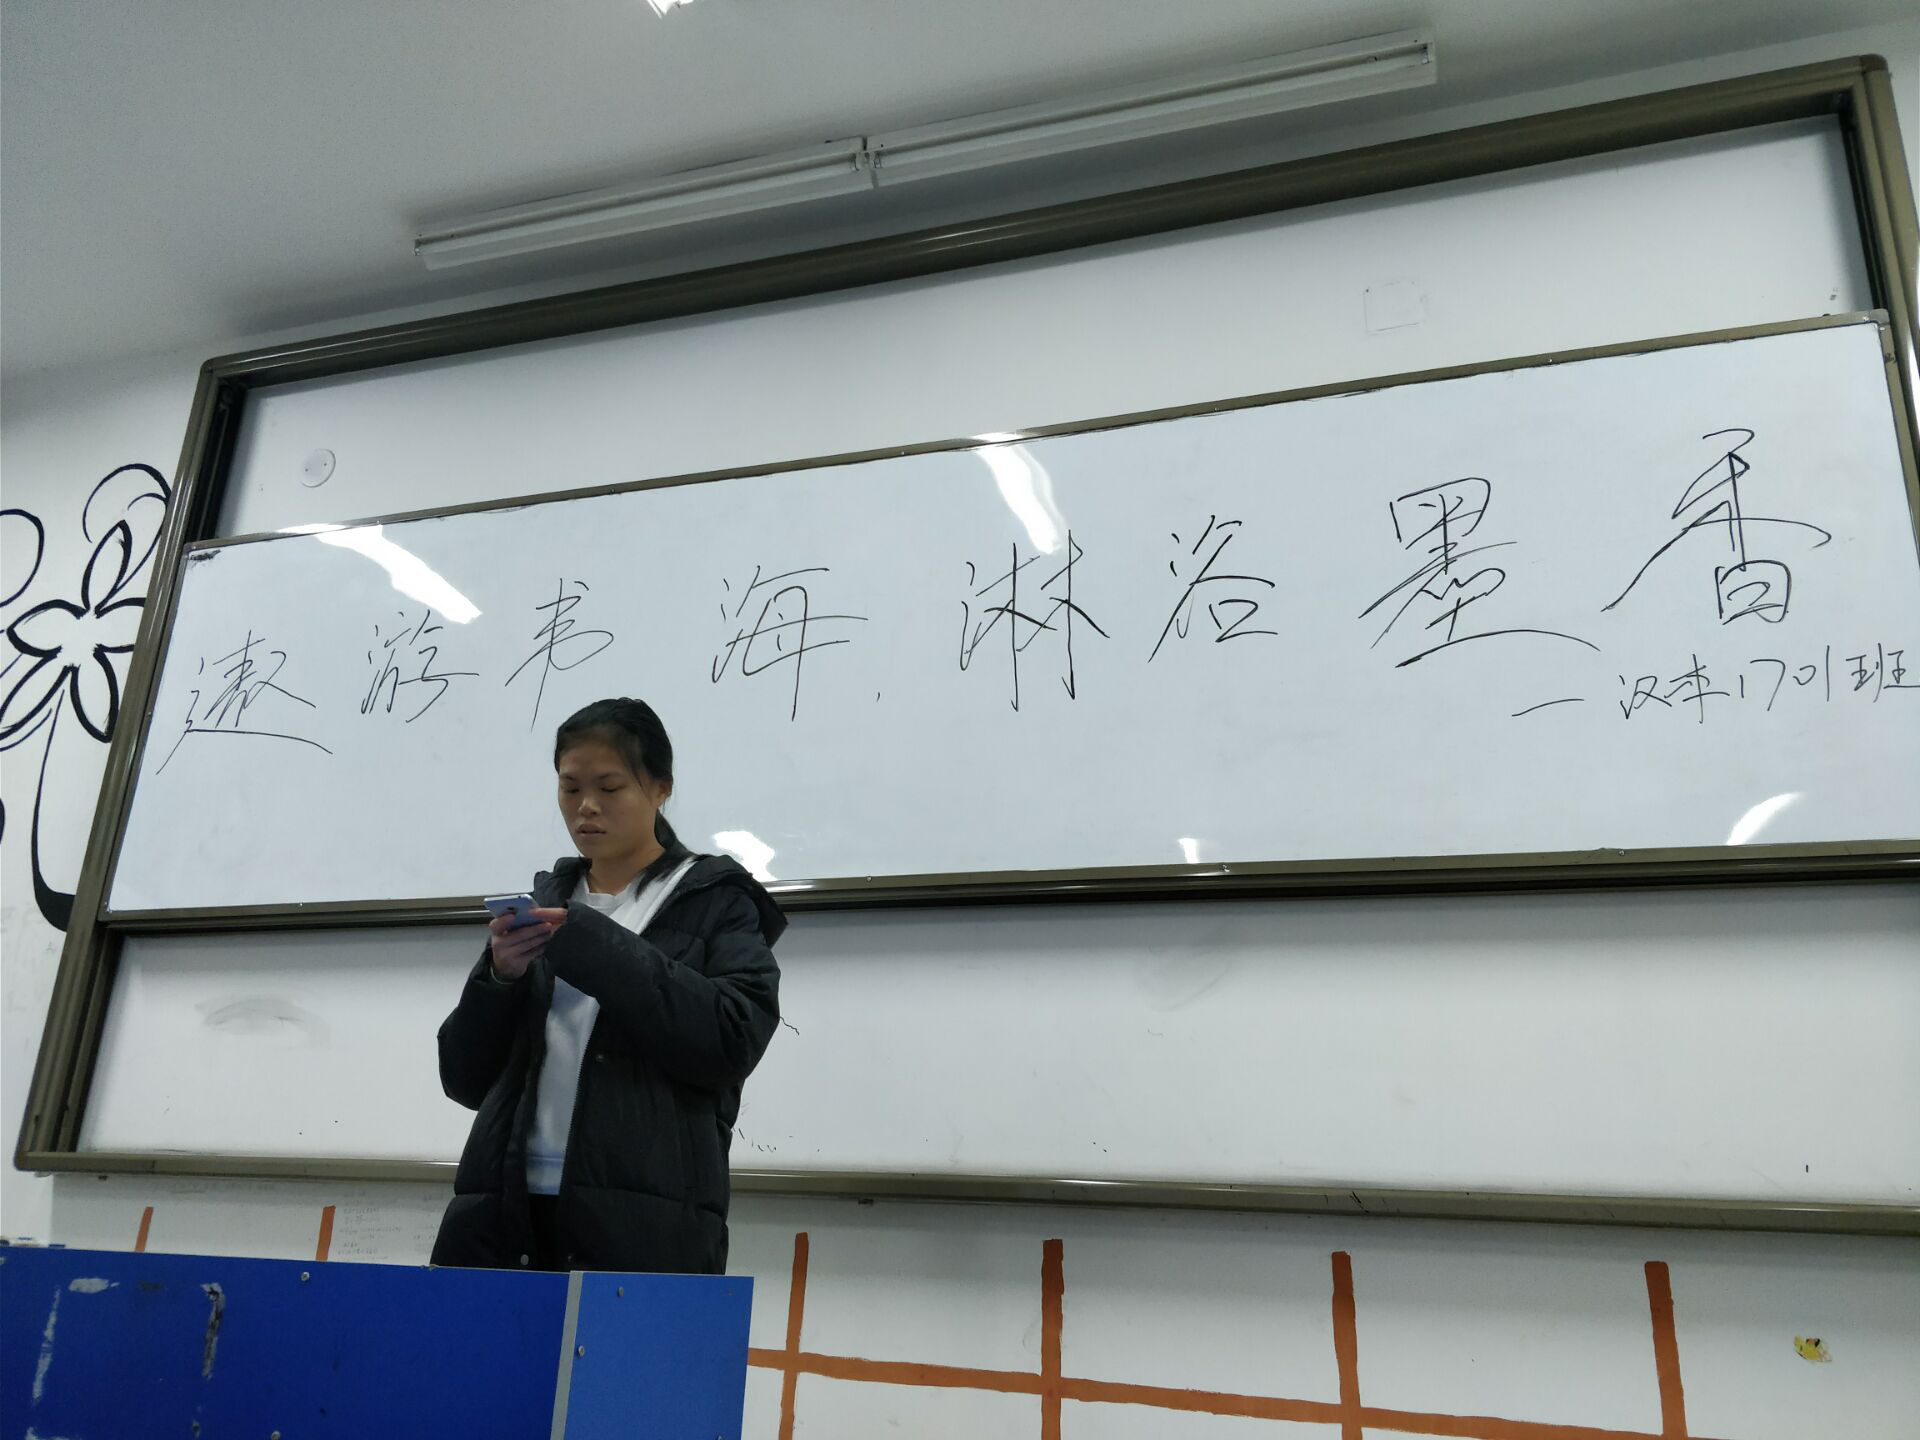 遨游书海,淋浴墨香
—汉本1701班